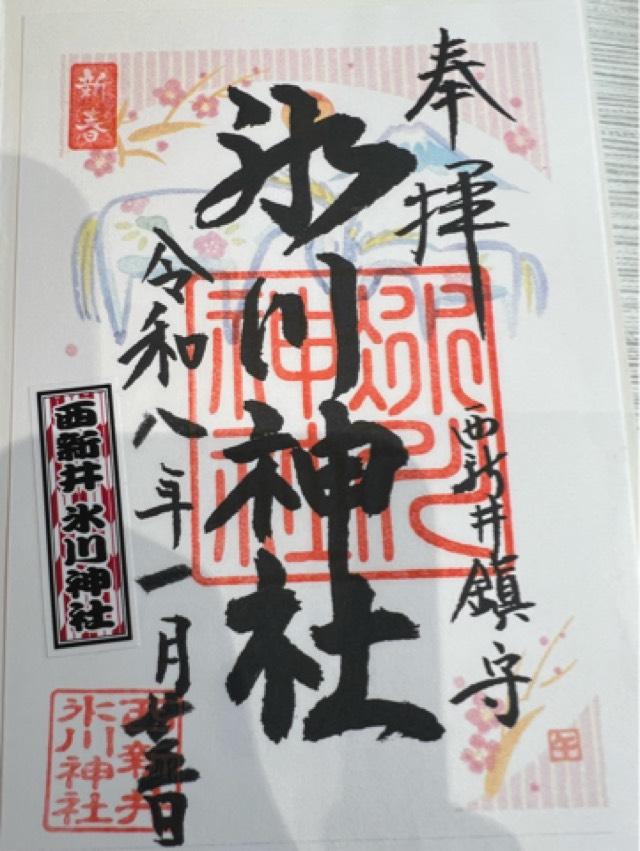 奉拝
西新井鎮守
氷川神社
氷川
神社
新春
令和八年一月
西新井 氷川神社
西新井
氷川神社
午